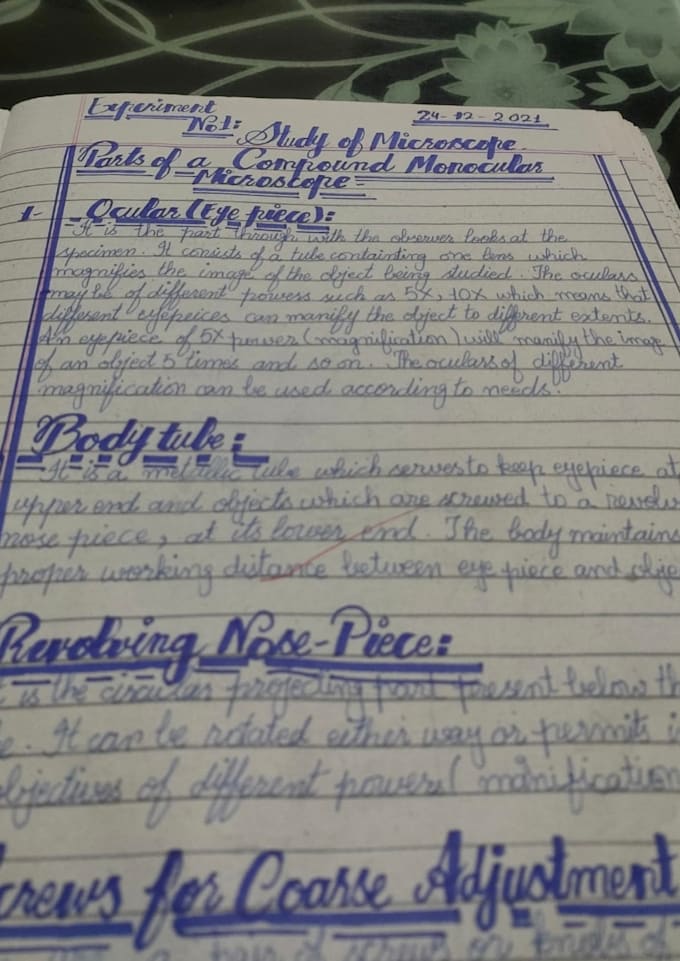 Experiment
24-12-2021
No1: Study of Microscope.
Parts of a Compound Monocular
Microscope:
1- Ocular (Eye piece):
It is the part through with the observer looks at the
specimen. It consists of a tube containting one lens which
magnifies the image of the object being studied. The oculars
may be of different powers such as 5X, 10X which means that
different eyepeices can manify the object to different extents.
An eyepiece of 5X power (magnification) will manify the image
of an object 5 times and so on. The oculars of different
magnification can be used according to needs.
Body tube:
It is a metallic tube which serves to keep eyepiece at
upper end and objects which are screwed to a revolv
nose piece, at its lower end. The body maintains
proper working distance between eye piece and obje
Revolving Nose-Piece:
is the circular projecting part present below th
e. It can be rotated either way or permits i
objectives of different power( manification
crews for Coarse Adjustment
a pair of screws or knobs of